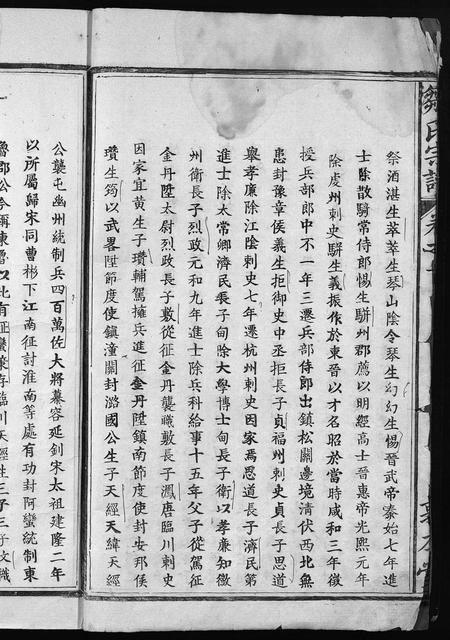 鄒氏宗譜
祭酒湛生莘莘生琴山陰令琴生幻幻生惕晉武帝泰始七年進
士除散騎常侍郎惕生駢州郡薦以明經高士晉惠帝光熙元年
除虔州刺史駢生義振作於東晉以才名昭於當時咸和三年徵
授兵部郎中不一年三遷兵部侍郎出鎮松關邊境清伏西北無
患封豫章侯義生拒御史中丞拒長子貞福州刺史貞長子思道
舉孝廉除江陰刺史七年遷杭州刺史因家焉思道長子濟民第
進士除太常卿濟民長子甸除大學博士甸長子衛以孝廉知徵
州衛長子烈政元和九年進士除兵科給事十五年父子從駕征
金丹陞太尉烈政長子敷從征金丹襲職敷長子瀾唐臨川刺史
因家宜黄生子瓚輔駕擁兵進征金丹陞鎮南節度使封安邦侯
瓚生筠以武畧陞節度使鎮潼關封潞國公生子天經天緯天經
公襲屯幽州統制兵四百萬佐大將慕容延釗宋太祖建隆二年
以所屬歸宋同曹彬下江南征討淮南等處有功封阿蠻統制東